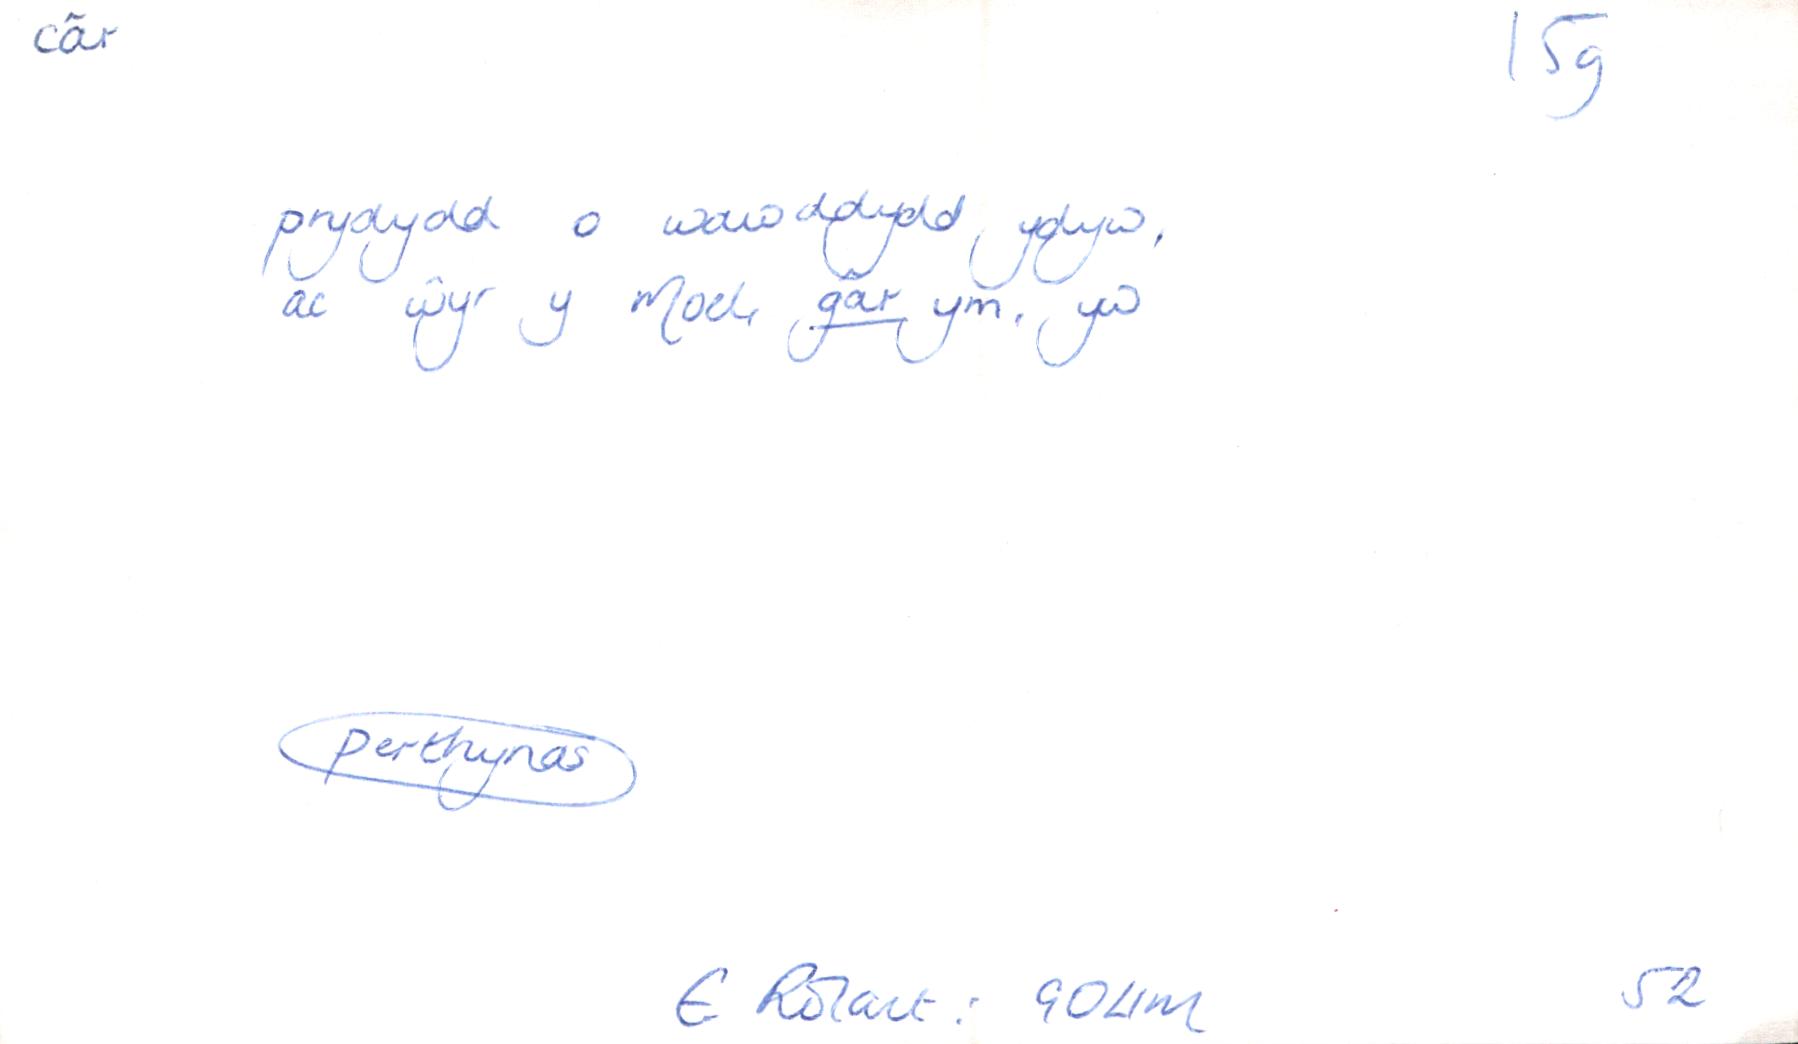 câr 15g
prydydd o wawddydd ydyw,
ac ŵyr y Moch, gâr ym, yw
perthynas
E Rolant: 52